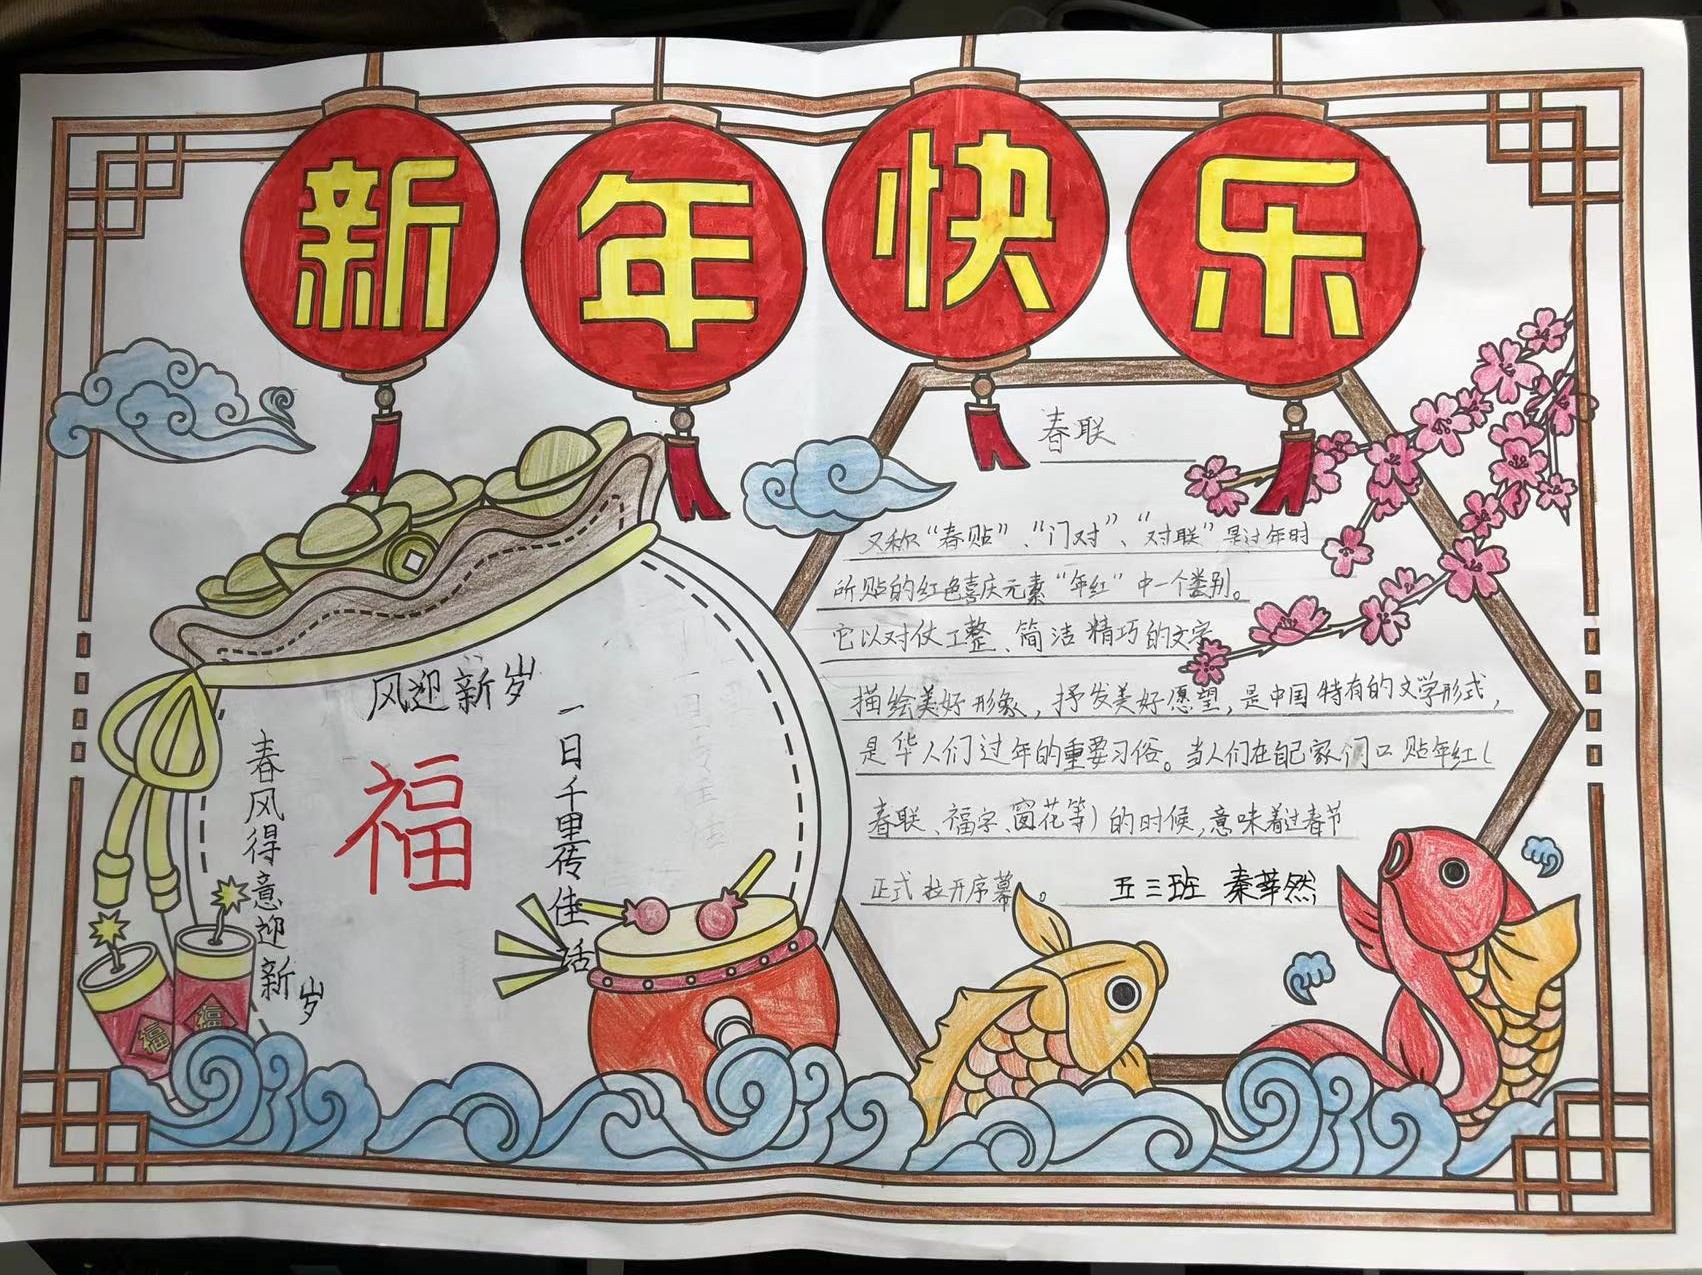 新年快乐
风迎新岁
春风得意迎新岁
福
一日千里传佳话
福
福
春联
又称“春贴”、“门对”、“对联”是过年时
所贴的红色喜庆元素“年红”中一个类别。
它以对仗工整、简洁精巧的文字
描绘美好形象，抒发美好愿望，是中国特有的文学形式，
是华人们过年的重要习俗。当人们在自己家门口贴年红（
春联、福字、窗花等）的时候，意味着过春节
正式拉开序幕。
五三班 秦苹然